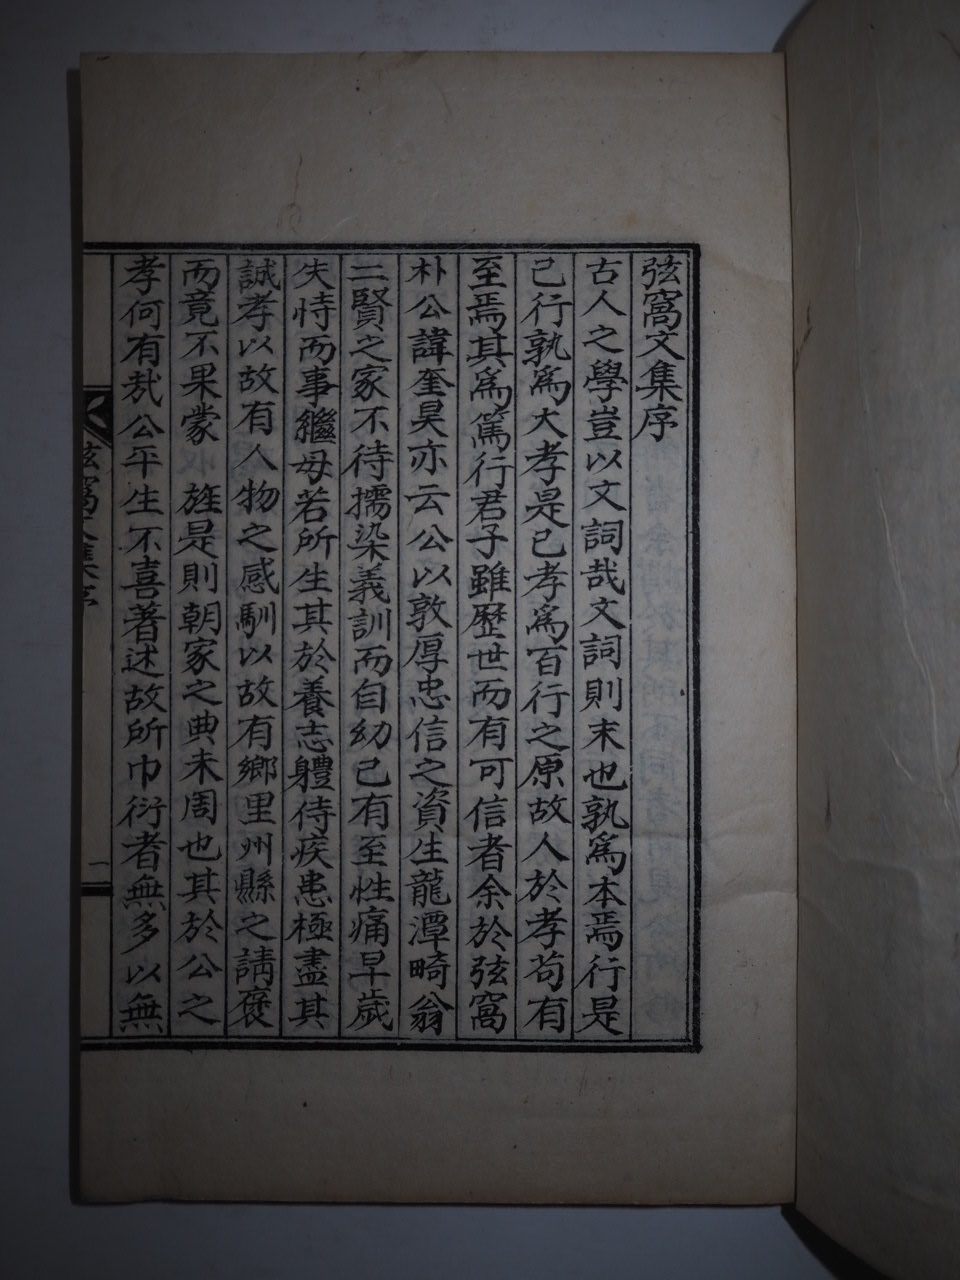 弦窩文集序
古人之學豈以文詞哉文詞則末也孰爲本焉行是
己行孰爲大孝是已孝爲百行之原故人於孝苟有
至焉其爲篤行君子雖歷世而有可信者余於弦窩
朴公諱奎昊亦云公以敦厚忠信之資生龍潭畸翁
二賢之家不待擩染義訓而自幼已有至性痛早歲
失恃而事繼母若所生其於養志軆侍疾患極盡其
誠孝以故有人物之感馴以故有鄉里州縣之請褒
而竟不果蒙 旌是則朝家之典未周也其於公之
孝何有㢤公平生不喜著述故所巾衍者無多以無
弦窩文集序
一